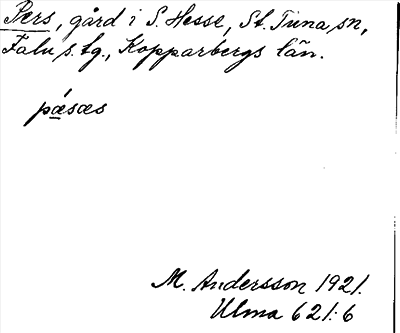 Pers, gård i S. Hesse, St. Tuna sn,
Falu s. tg., Kopparbergs län.
pǽsæs
M. Andersson 1921.
Ulma 621:6